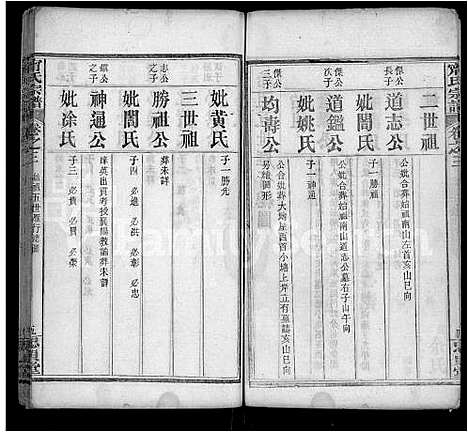 甯氏宗譜
卷之三
二世祖
傑公長子
道志公
公妣合葬始祖南山左首亥山巳向
妣閻氏
子一勝祖
傑公次子
道鑑公
公妣合葬始祖南山道志公墓右子山午向
妣姚氏
子一神通
傑公三子
均壽公
公妣合葬大塆屋西首小塘上岸立有墓誌亥山巳向
另繪圖形
妣黄氏
子一勝先
三世祖
志公之子
勝祖公
葬未詳
妣閻氏
子四 必進 必洪 必彰 必忠
鑑公之子
神通公
妣涂氏
子三 必貴 必賢 必榮
甯氏宗譜
卷之三